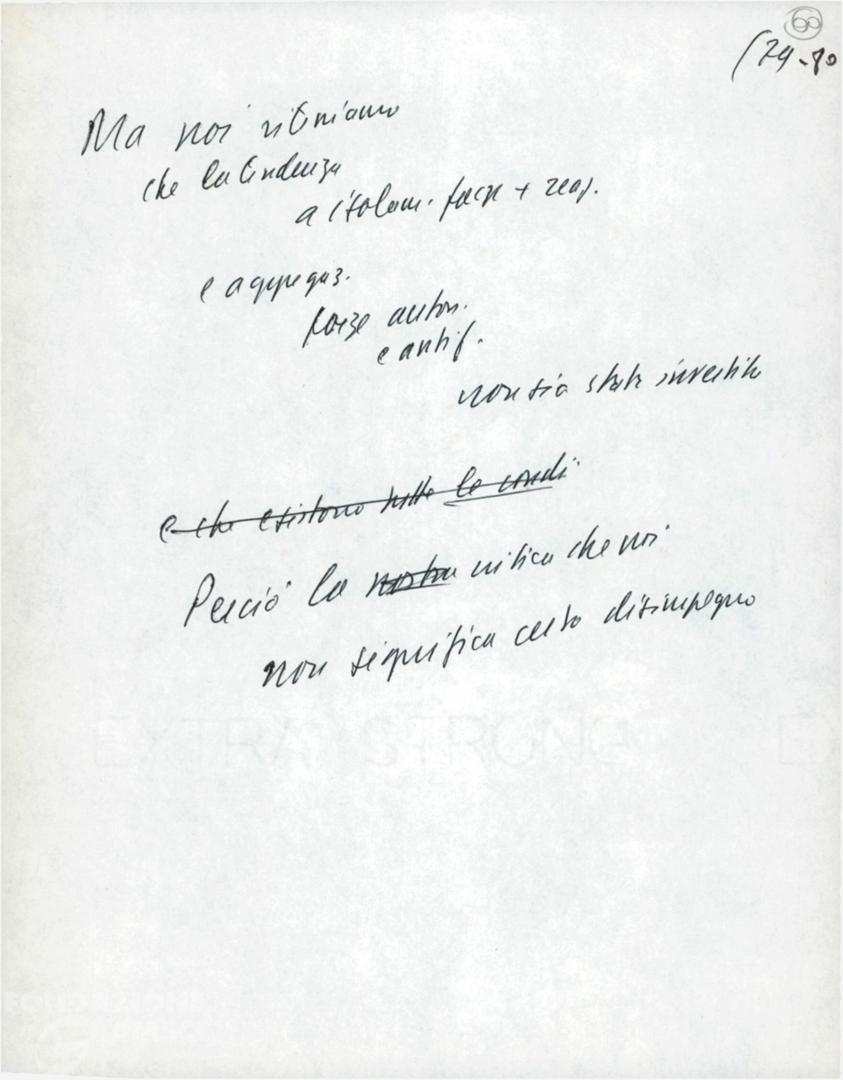 60
(79-80
Ma noi riteniamo
che la tendenza
a isolam. forze + reaz.
e aggregaz.
forze auton.
e antif.
non sia stata invertita
e che esistono tutte le condi
Perciò la nostra critica che noi
non significa certo disimpegno
EXTRA STRONG
FONDAZIONE